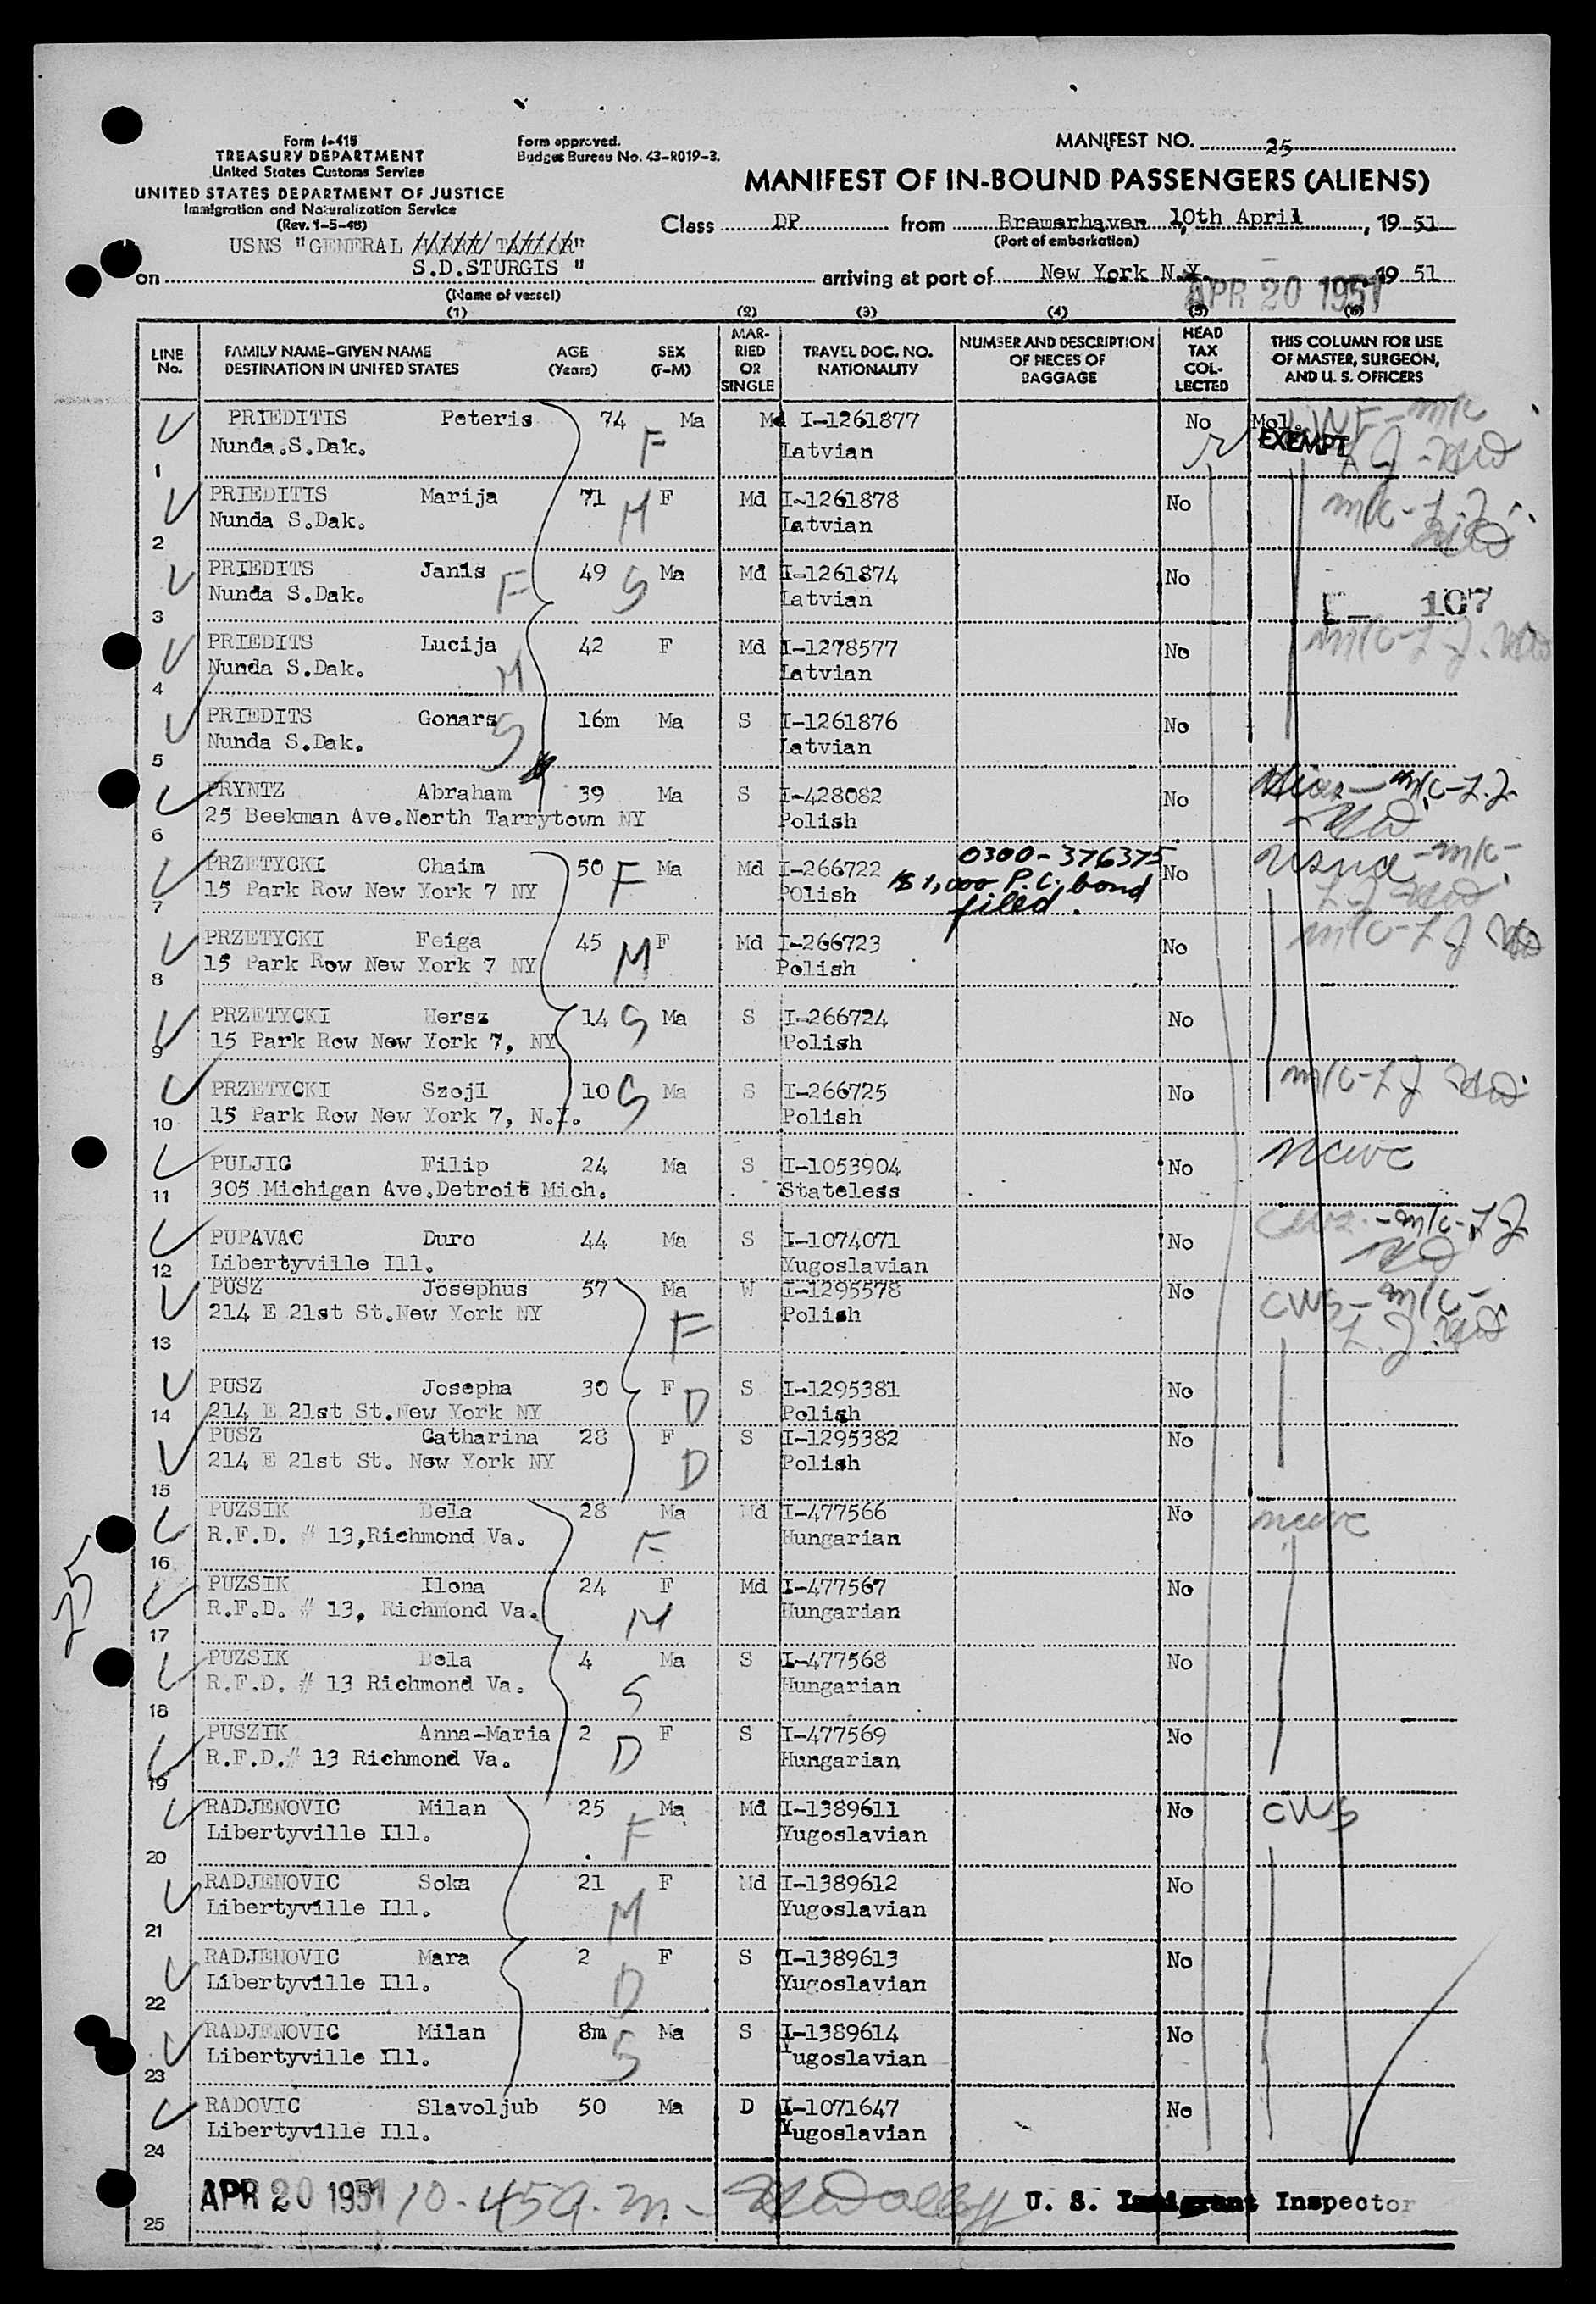 Form I-415
TREASURY DEPARTMENT
United States Customs Service
UNITED STATES DEPARTMENT OF JUSTICE
Immigration and Naturalization Service
(Rev. 1-5-48)
Form approved.
Budget Bureau No. 43-R019-3.
MANIFEST NO. 25
MANIFEST OF IN-BOUND PASSENGERS (ALIENS)
Class DP from Bremerhaven, 10th April, 1951
(Port of embarkation)
USNS "GENERAL HARRY TAYLOR"
on S.D.STURGIS " arriving at port of New York N.Y. 1951
(Name of vessel)
APR 20 1951
(1) (2) (3) (4) (5) (6)
LINE No. FAMILY NAME–GIVEN NAME DESTINATION IN UNITED STATES AGE (Years) SEX (F–M) MARRIED OR SINGLE TRAVEL DOC. NO. NATIONALITY NUMBER AND DESCRIPTION OF PIECES OF BAGGAGE HEAD TAX COLLECTED THIS COLUMN FOR USE OF MASTER, SURGEON, AND U. S. OFFICERS
PRIEDITIS Peteris 74 F Ma Md I-1261877 No Mol. LWF-m/c
1 Nunda.S.Dak. Latvian EXEMPT
PRIEDITIS Marija 71 M F Md I-1261878 No
2 Nunda S.Dak. Latvian
PRIEDITS Janis F 49 S Ma Md I-1261874 No
3 Nunda S.Dak. Latvian 107
PRIEDITS Lucija M 42 F Md I-1278577 No
4 Nunda S.Dak. Latvian
PRIEDITS Gonars S 16m Ma S I-1261876 No
5 Nunda S.Dak. Latvian
PRYNTZ Abraham 39 Ma S I-428082 No Hias-m/c-L.J.
6 25 Beekman Ave.North Tarrytown NY Polish
PRZETYCKI Chaim 50 F Ma Md I-266722 0300-376375 No usna-m/c-
7 15 Park Row New York 7 NY POlish $1,000 P.C. bond filed.
PRZETYCKI Feiga 45 M F Md I-266723 No
8 15 Park Row New York 7 NY Polish
PRZETYCKI Hersz 14 S Ma S I-266724 No
9 15 Park Row New York 7, NY Polish
PRZETYCKI Szojl 10 S Ma S I-266725 No
10 15 Park Row New York 7, N.Y. Polish
PULJIC Filip 24 Ma S I-1053904 No ncwc
11 305 Michigan Ave.Detroit Mich. Stateless
PUPAVAC Duro 44 Ma S I-1074071 No
12 Libertyville Ill. Yugoslavian
PUSZ Josephus 57 Ma W I-1295578 No CWS-m/c-
13 214 E 21st St.New York NY F Polish
PUSZ Josepha 30 F D S I-1295381 No
14 214 E 21st St.New York NY Polish
PUSZ Catharina 28 F D S I-1295382 No
15 214 E 21st St. New York NY Polish
PUZSIK Bela 28 Ma Md I-477566 No ncwc
16 R.F.D. # 13,Richmond Va. F Hungarian
PUZSIK Ilona 24 F Md I-477567 No
17 R.F.D. # 13, Richmond Va. M Hungarian
PUZSIK Bela 4 Ma S I-477568 No
18 R.F.D. # 13 Richmond Va. S Hungarian
PUSZIK Anna-Maria 2 F S I-477569 No
19 R.F.D.# 13 Richmond Va. D Hungarian
RADJENOVIC Milan 25 Ma Md I-1389611 No CWS
20 Libertyville Ill. F Yugoslavian
RADJENOVIC Soka 21 F Md I-1389612 No
21 Libertyville Ill. M Yugoslavian
RADJENOVIC Mara 2 F S I-1389613 No
22 Libertyville Ill. D Yugoslavian
RADJENOVIC Milan 8m Ma S I-1389614 No
23 Libertyville Ill. S Yugoslavian
RADOVIC Slavoljub 50 Ma D I-1071647 No
24 Libertyville Ill. Yugoslavian
25 APR 20 1951 10-45 a.m. U. S. Immigrant Inspector
25